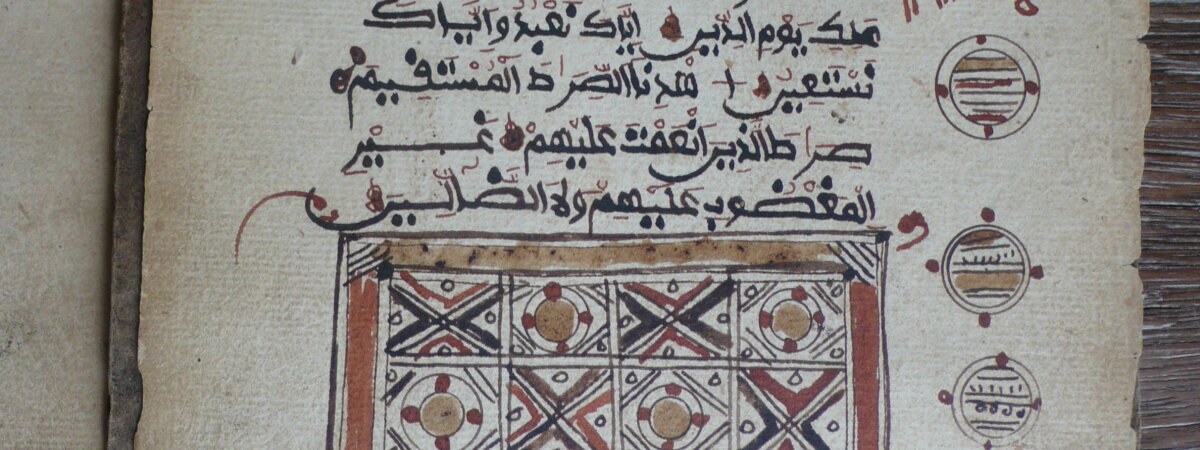 مَلِكِ يَوْمِ الدِّينِ إِيَّاكَ نَعْبُدُ وَإِيَّاكَ
نَسْتَعِينُ اهْدِنَا الصِّرَاطَ الْمُسْتَقِيمَ
صِرَاطَ الَّذِينَ أَنْعَمْتَ عَلَيْهِمْ غَيْرِ
الْمَغْضُوبِ عَلَيْهِمْ وَلَا الضَّالِّينَ